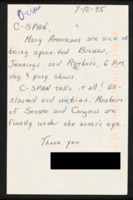 7-10-95
C-SPAN,
Many Americans are sick of
being spoon-fed Brokaw,
Jennings and Rathers, 6 P.M.
dog & pony shows.
C-SPAN tells it all! Un-
slanted and unbias. Members
of Senate and Congress are
finally under the voter's eye.
Thank you